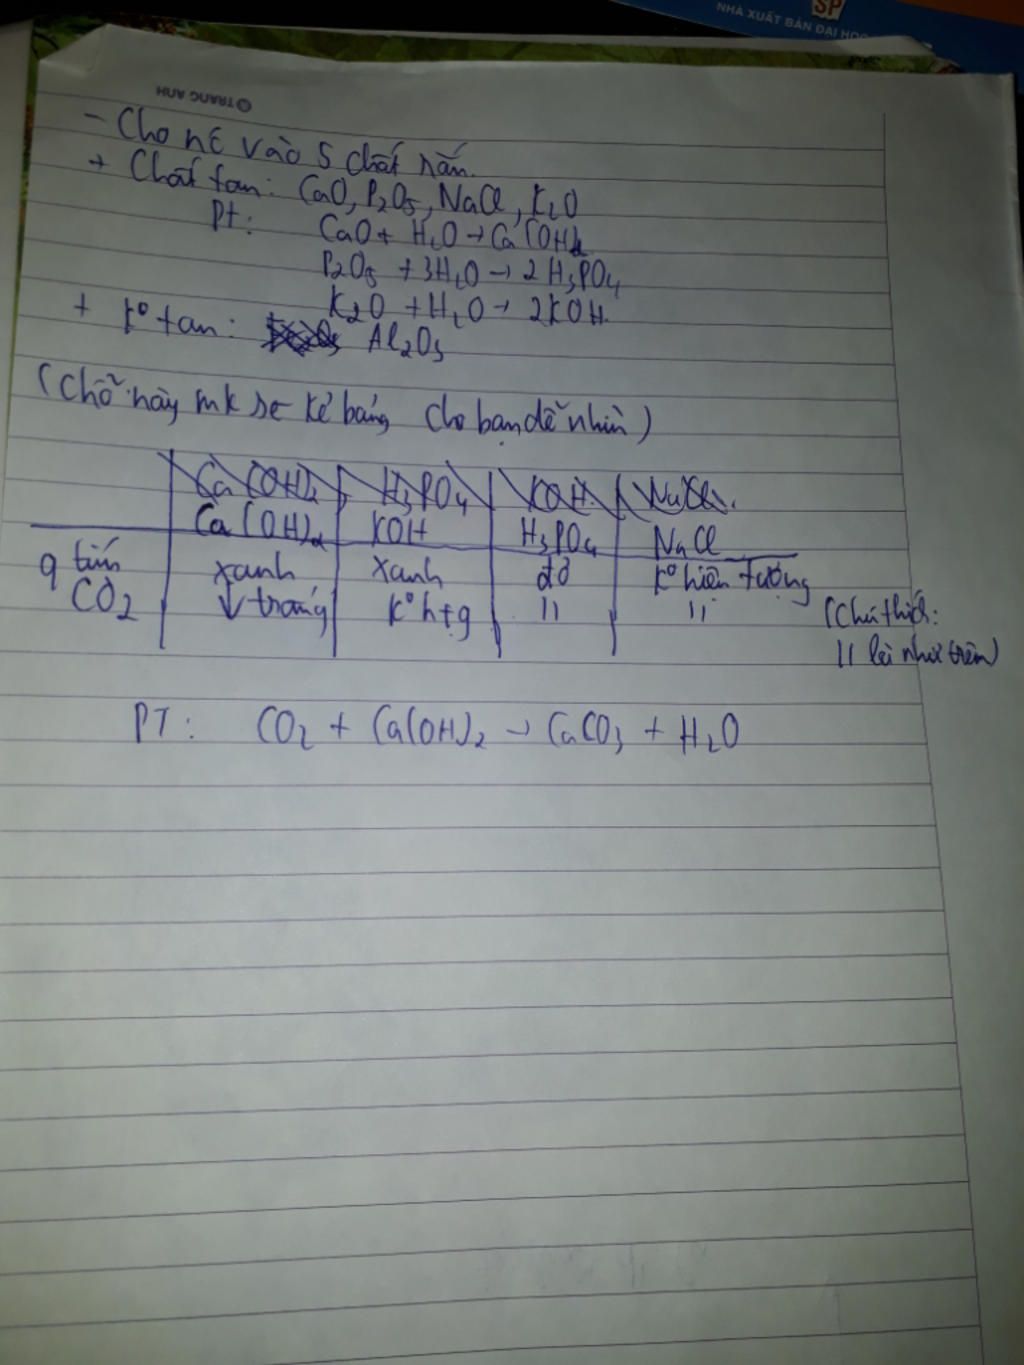 SP
NHÀ XUẤT BẢN ĐẠI HỌC
TRANG ANH
- Cho nc vào 5 chất rắn.
+ Chất tan: CaO, P2O5, NaCl, K2O
Pt: CaO + H2O → Ca(OH)2
P2O5 + 3H2O → 2H3PO4
K2O + H2O → 2KOH
+ k° tan: Al2O3
(Chỗ này mk sẽ kẻ bảng cho bạn dễ nhìn)
Ca(OH)2 H3PO4 KOH NaCl
Ca(OH)2 KOH H3PO4 NaCl
q tím xanh xanh đỏ k° hiện tượng
CO2 ↓ trắng k° htg || ||
(Chú thích:
|| là như trên)
PT: CO2 + Ca(OH)2 → CaCO3 + H2O